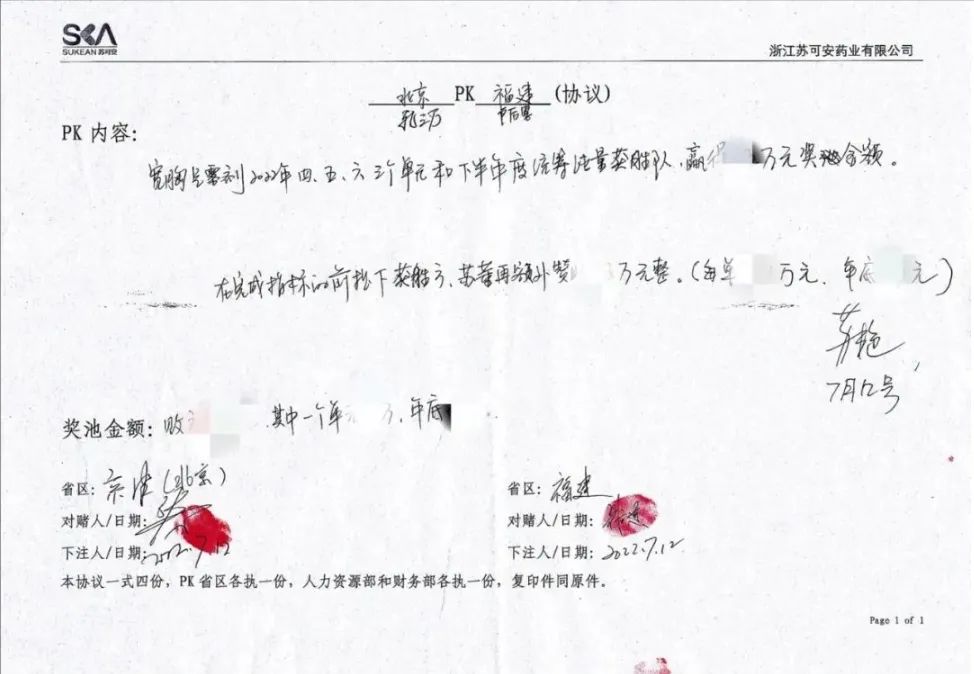 SKA
SUKEAN 苏可安
浙江苏可安药业有限公司
北京 PK 福建 (协议)
PK 内容:
2022年四、五、六三个单元和下半年度 获胜队、赢得 万元奖 金额。
在完成指标的前提下获胜方、苏 再额外 万元整。(每单 万元、年底 元)
苏艳
7月12号
奖池金额: 其中一个单 万、年底
省区: 京津(北京) 省区: 福建
对赌人/日期: 对赌人/日期:
下注人/日期: 2022.7.12 下注人/日期: 2022.7.12
本协议一式四份,PK 省区各执一份,人力资源部和财务部各执一份,复印件同原件。
Page 1 of 1